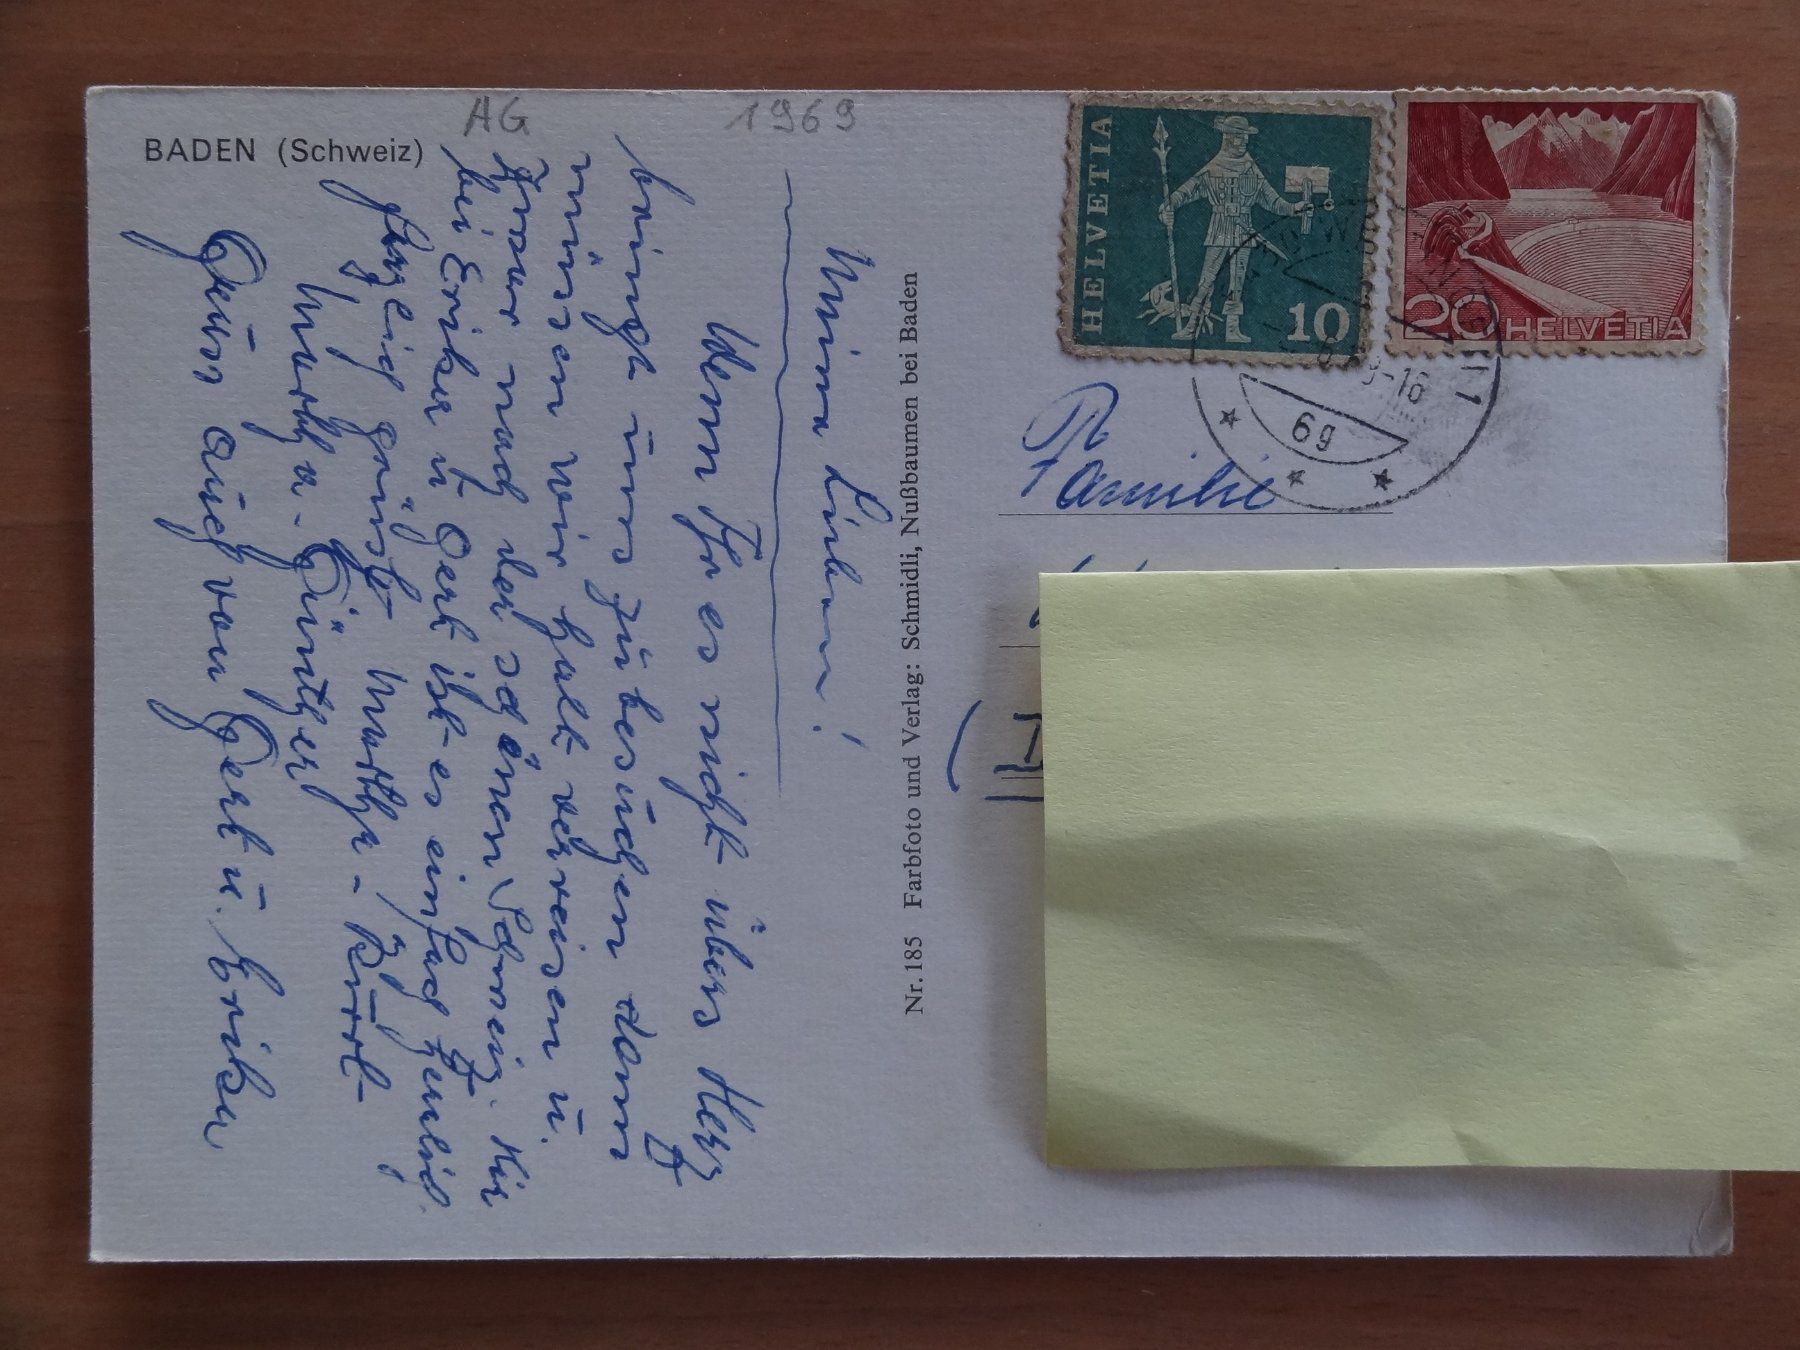 BADEN (Schweiz)
AG
1969
Meine Lieben!
Wenn Ihr es nicht übers Herz
bringt uns zu besuchen dann
müssen wir halt verreisen u.
zwar nach der schönen Schweiz. Hir
bei Erika u Gert ist es einfach herrlich.
Herzlich grüßt Martha - Kurt
Martha - Günther
Gruss auch von Gert u. Erika
Nr. 185 Farbfoto und Verlag: Schmidli, Nußbaumen bei Baden
HELVETIA
10
20 HELVETIA
-16
1
69
Familie